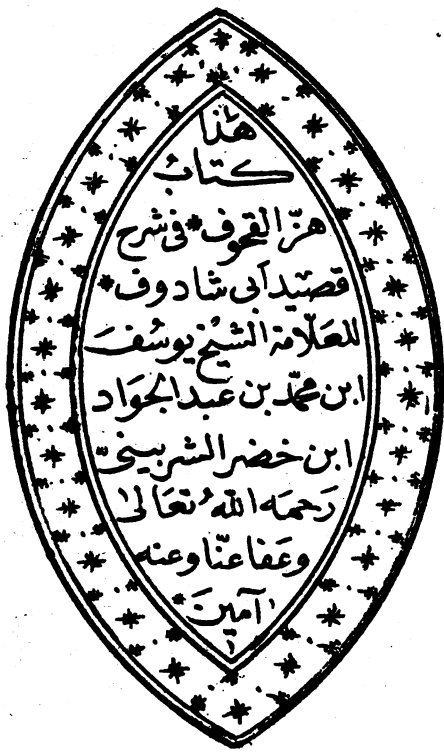 هذا
كتاب
هزّ القحوف * فى شرح
قصيد أبى شادوف *
للعلّامة الشيخ يوسف
ابن محمّد بن عبد الجواد
ابن خضر الشربينىّ
رحمه الله تعالى
وعفا عنّا وعنه
آمين *